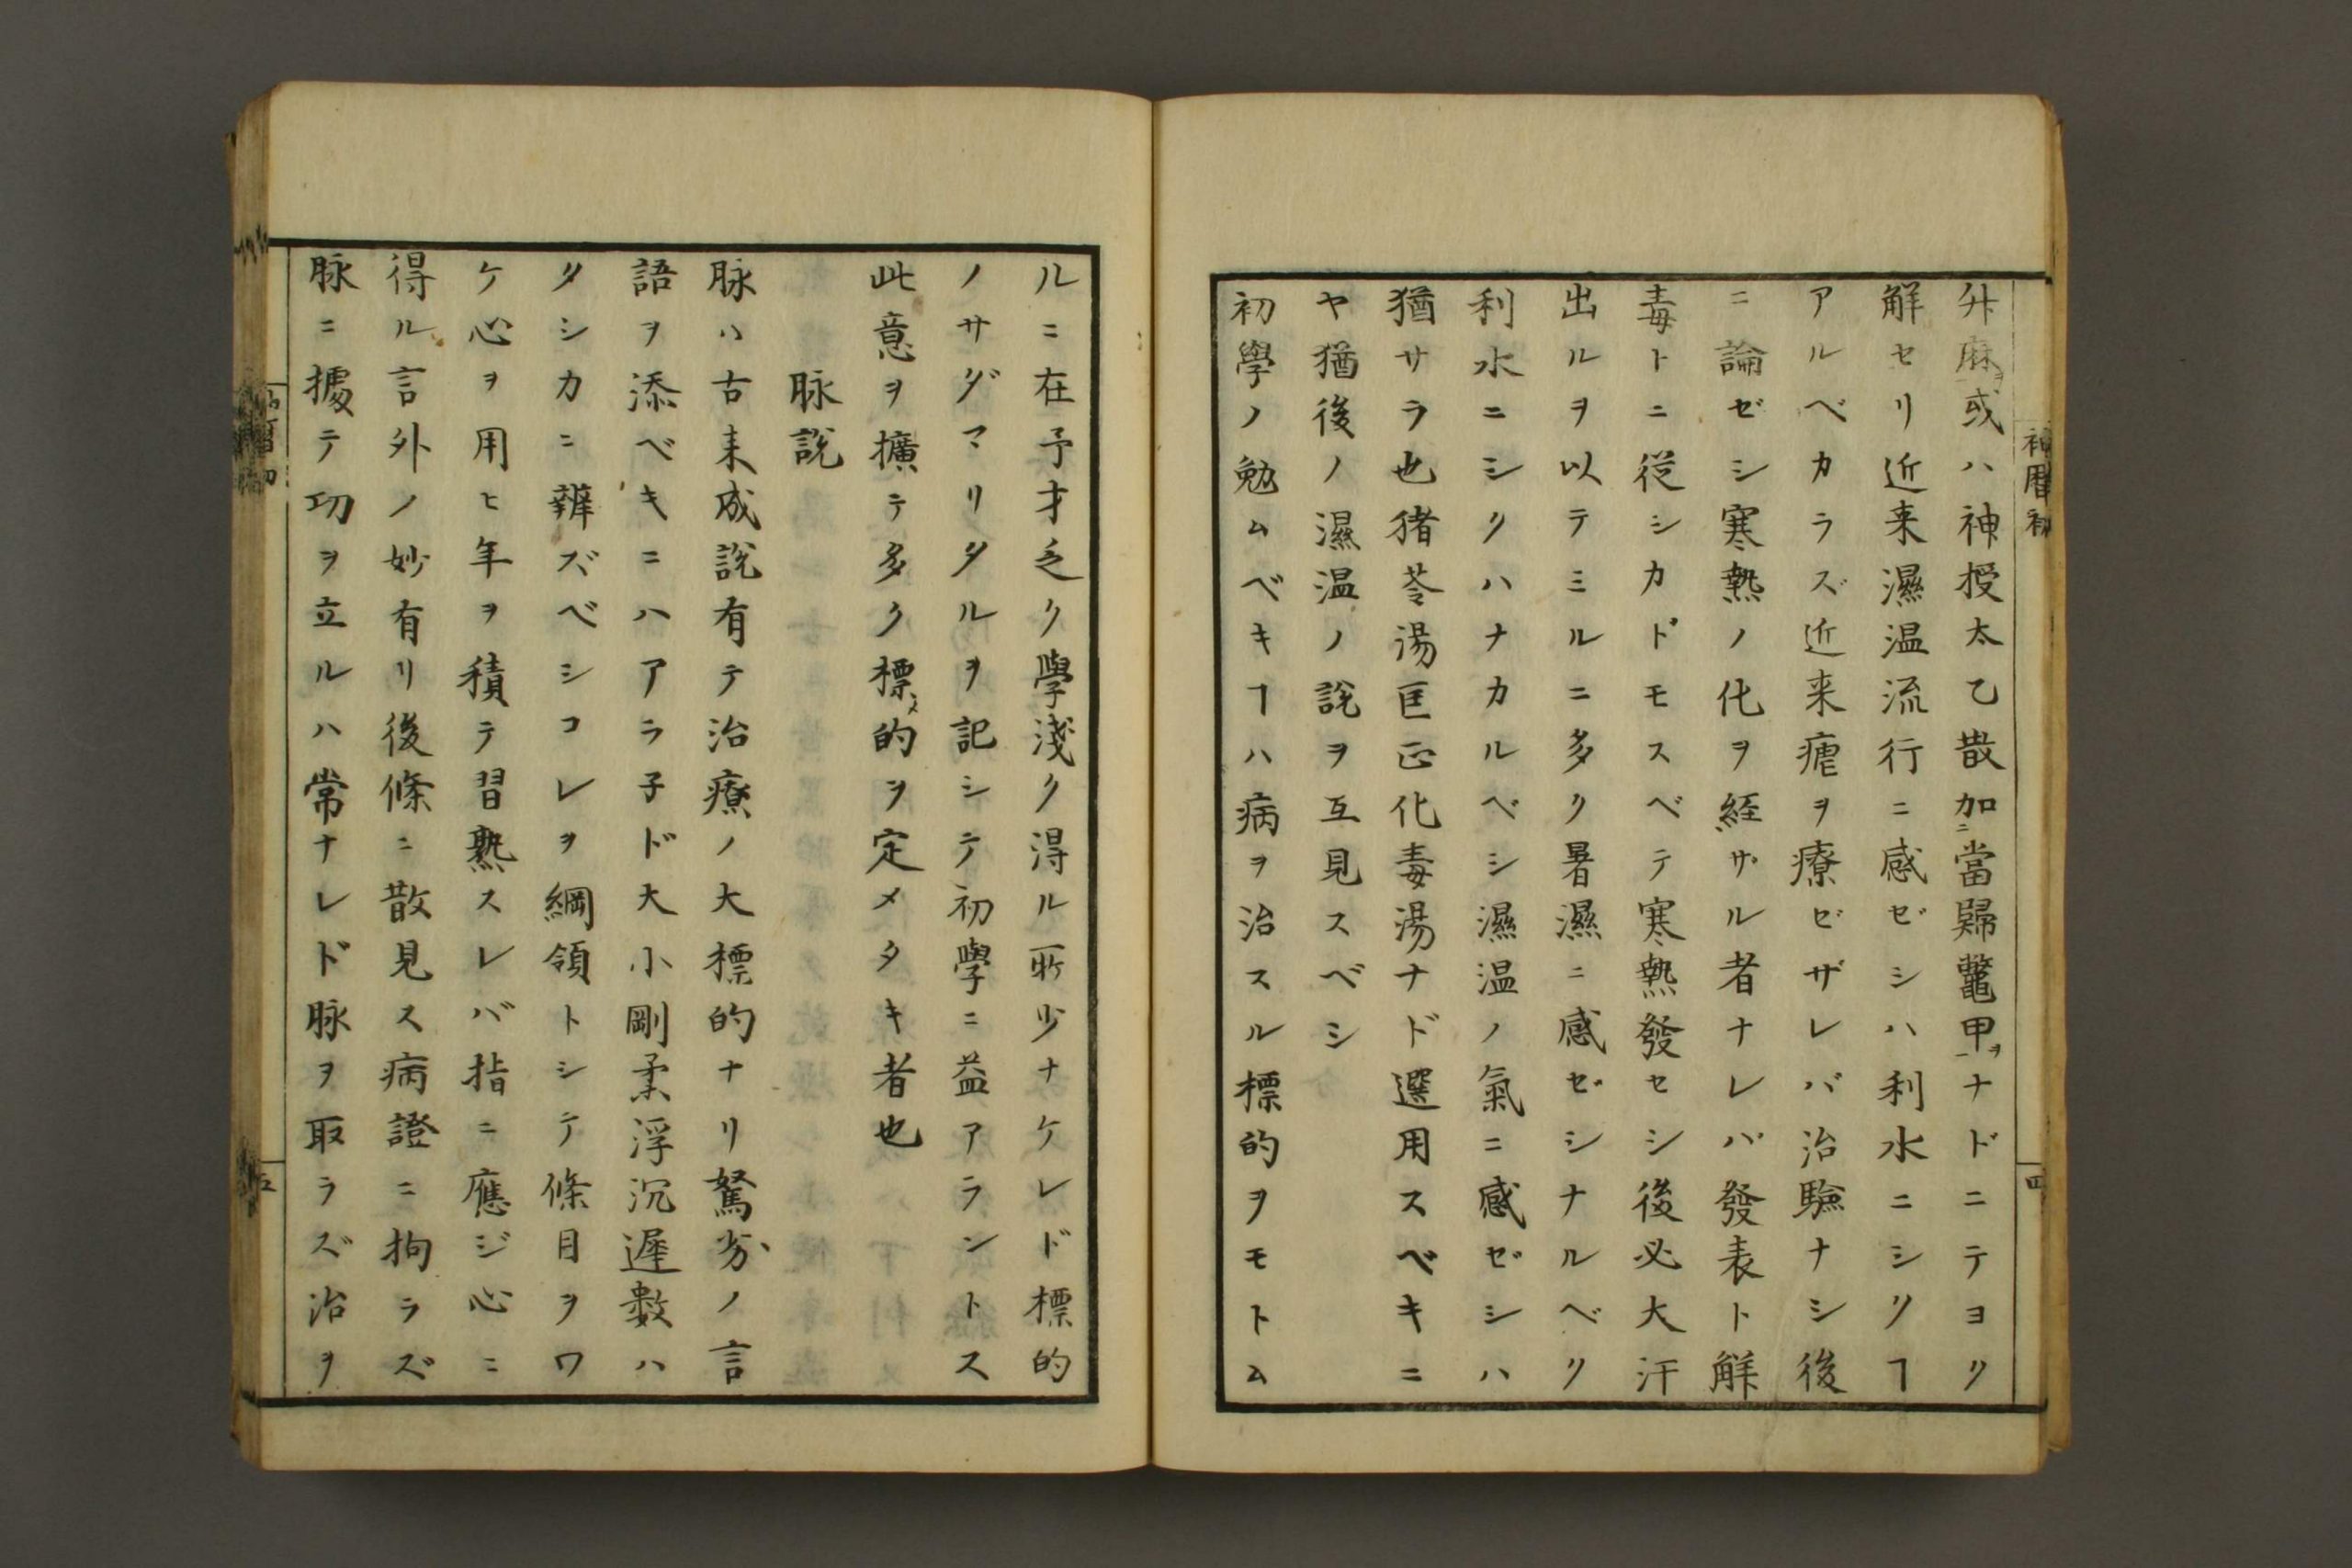 升麻ヲ或ハ神授太乙散加ニ當歸鼈甲ヲナドニテヨク
解セリ近来濕温流行ニ感ゼシハ利水ニシクヿ
アルベカラズ近来瘧ヲ療ゼザレバ治驗ナシ後
ニ論ゼシ寒熱ノ化ヲ経ザル者ナレバ發表ト解
毒トニ從シカドモスベテ寒熱發セシ後必大汗
出ルヲ以テミルニ多ク暑濕ニ感ゼシナルベク
利水ニシクハナカルベシ濕温ノ氣ニ感ゼシハ
猶サラ也猪苓湯匡正化毒湯ナド選用スベキニ
ヤ猶後ノ濕温ノ説ヲ互見スベシ
初學ノ勉ムベキヿハ病ヲ治スル標的ヲモトム
ルニ在予才乏ク學淺ク得ル所少ナケレド標的
ノサダマリタルヲ記シテ初學ニ益アラントス
此意ヲ擴テ多ク標的ヲ定メタキ者也
脉説
脉ハ古来成説有テ治療ノ大標的ナリ駑劣ノ言
語ヲ添ベキニハアラ子ド大小剛柔浮沉遲數ハ
タシカニ辨ズベシコレヲ綱領トシテ條目ヲワ
ケ心ヲ用ヒ年ヲ積テ習熟スレバ指ニ應ジ心ニ
得ル言外ノ妙有リ後條ニ散見ス病證ニ拘ラズ
脉ニ據テ功ヲ立ルハ常ナレド脉ヲ取ラズ治ヲ